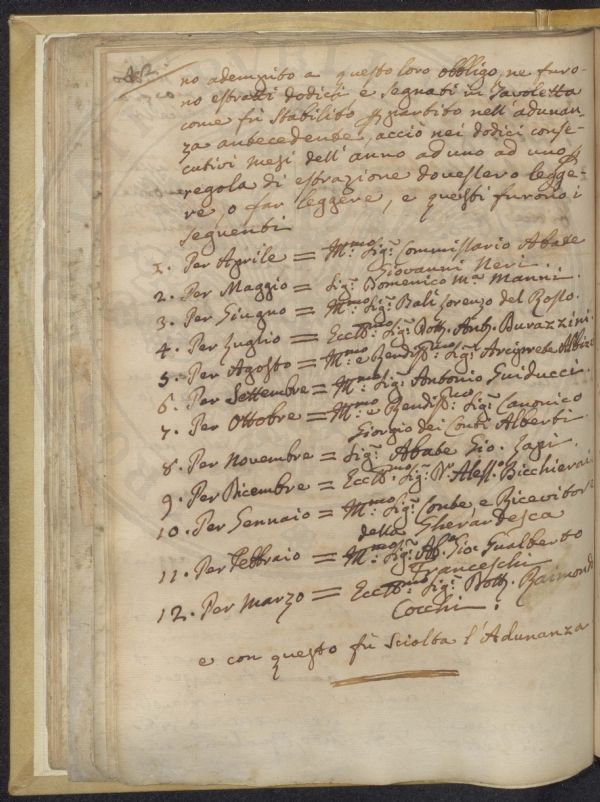 42.
no adempito a questo loro obbligo, ne furo-
no estratti dodici e segnati in Tavoletta
come fù Stabilito e partito nell'adunan-
za antecedente, acciò nei dodici conse-
cutivi mesi dell'anno ad uno ad uno p
regola di estrazione dovessero legge-
re, o far leggere, e questi furono i
seguenti
1. Per Aprile = Ill.mo Sig.r Commissario Abate
Giovanni Neri.
2. Per Maggio = Sig.r Domenico M.a Manni.
3. Per Giugno = Ill.mo Sig.r Balì Lorenzo del Rosso.
4. Per Luglio = Ecc.mo Sig.r Dott. Ant. Durazzini.
5. Per Agosto = Ill.mo e Rendiss.mo Sig.r Arciprete Albizi
6. Per Settembre = Ill.mo Sig.r Antonio Guiducci.
7. Per Ottobre = Ill.mo e Rendiss.mo Sig.r Canonico
Giorgio dei Conti Alberti
8. Per Novembre = Sig.r Abate Gio. Lapi.
9. Per Dicembre = Ecc.mo Sig.r D.r Aless.o Bicchierai.
10. Per Gennaio = Ill.mo Sig.r Conte, e Ricevitore
della Gherardesca
11. Per Febbraio = Ill.mo Sig.r Ab.e Gio: Gualberto
Franceschi
12. Per Marzo = Ecc.mo Sig.r Dott. Raimondo
Cocchi.
e con questo fù Sciolta l'Adunanza